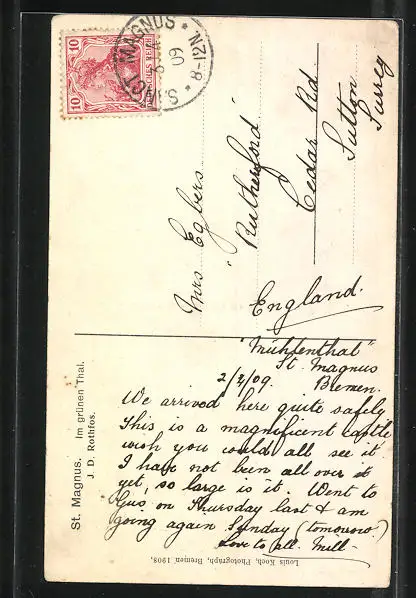 10 10
DEUTSCHES REICH
SANCT MAGNUS
09
8-12N
Mrs Egbers
"Rutherford"
Cedar Rd
Sutton
Surrey
England.
"Mühlenthal"
St. Magnus
Bremen.
2/4/09.
We arrived here quite safely
This is a magnificent castle,
wish you could all see it
I have not been all over it
yet, so large is it. Went to
Gus, on Thursday last & am
going again Sunday (tomorrow.)
Love to all. Will -
St. Magnus. Im grünen Thal.
J. D. Rothfos.
Louis Koch, Photograph, Bremen 1908.